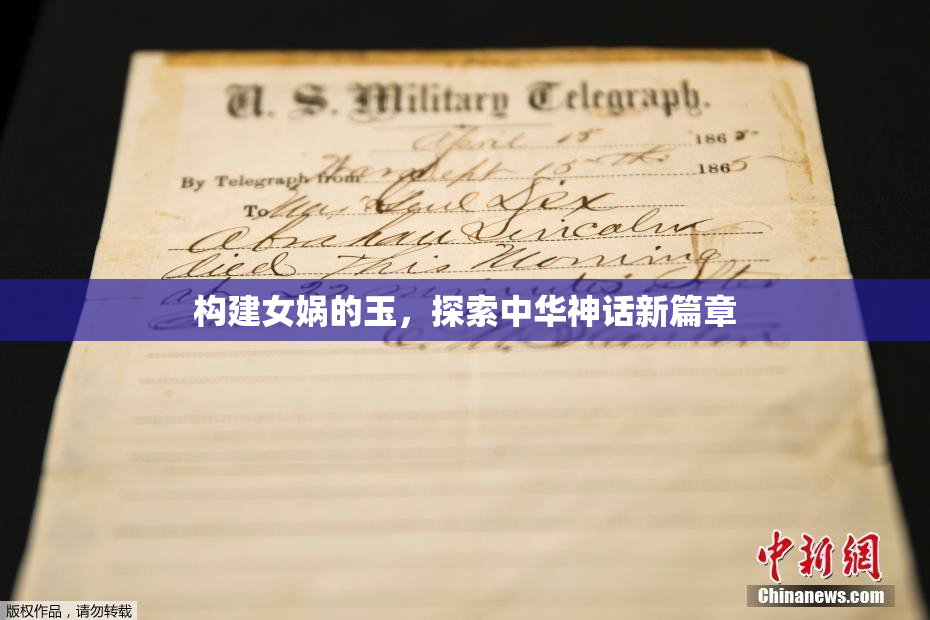 U. S. Military Telegraph.
April 15 1865
By Telegraph from War Dept 15th 1865
To Maj Genl Dix
Abraham Lincoln
died This Morning
at 22 minutes after
构建女娲的玉，探索中华神话新篇章
E. M. Stanton
中新网
Chinanews.com
版权作品，请勿转载